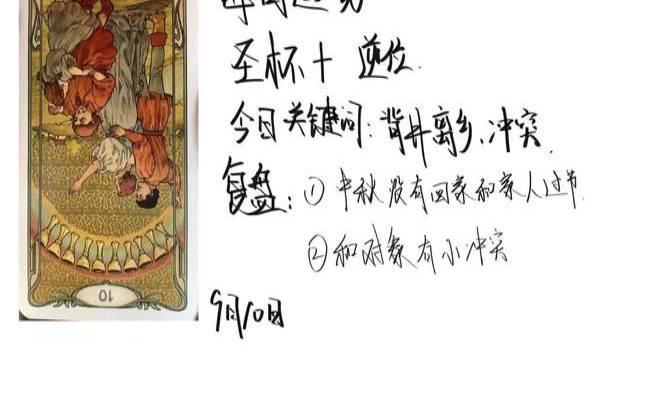 圣杯十 逆位.
今日关键词:背井离乡、冲突.
复盘:①中秋没有回家和家人过节.
②和对象有小冲突
9月10日
10